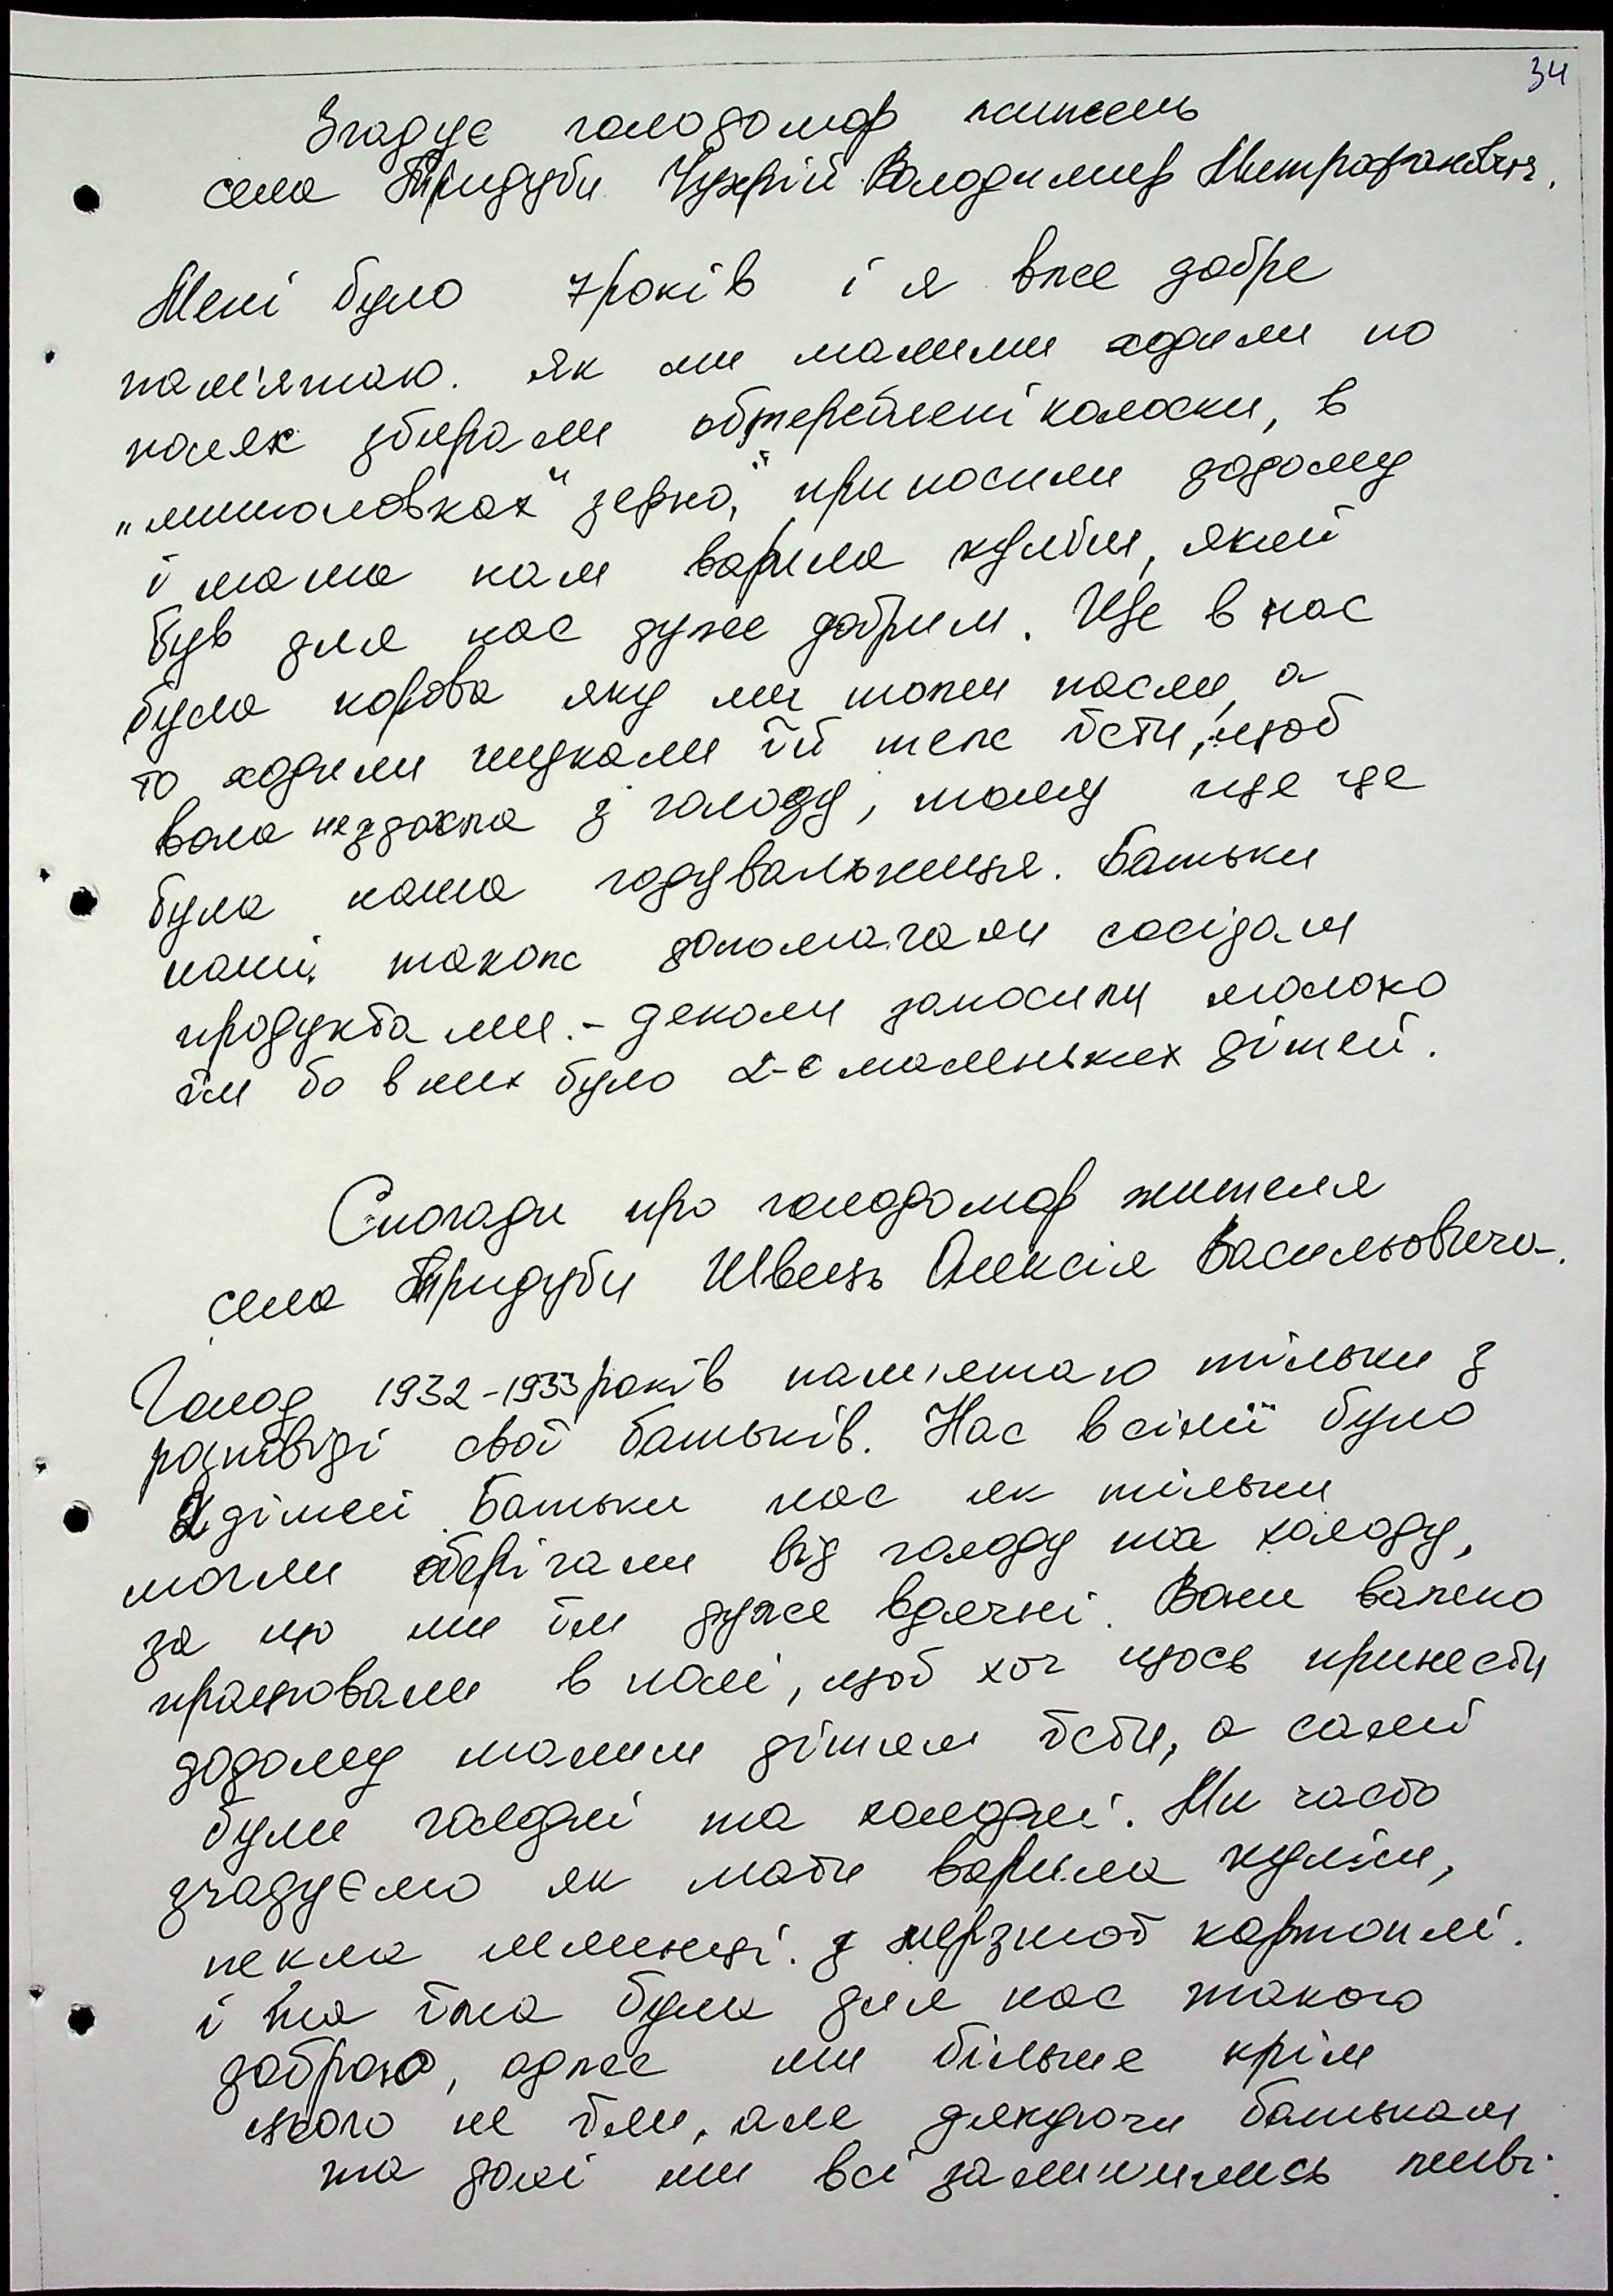 34
Згадує голодомор житель
села Тридуби Чухрій Володимир Митрофанович.
Мені було 7років і я вже добре
пам'ятаю. як ми малими ходили по
полях збирали колоски, в
„мишоловках" зерно, приносили додому
і мама нам варила куліш, який
був для нас дуже добрим. Ще в нас
була корова яку ми тожи пасли, а
то ходили шукали їй теж їсти, щоб
вона нездохла з голоду, тому що це
була наша годувальниця. Батьки
наші також допомагали сосідам
продуктами. - деколи заносили молоко
їм бо в них було 2-є маленьких дітей.
Спогади про голодомор жителя
села Тридуби Швець Олексія Васильовича.
Голод 1932-1933 років пам'ятаю тільки з
розповіді свої батьків. Нас в сімї було
2 дітей. Батьки нас як тільки
могли оберігали від голоду та холоду,
за що ми їм дуже вдячні. Вони важко
працювали в полі, щоб хоч щось принести
додому малим дітям їсти, а самі
були голодні та холодні. Ми часто
згадуємо як мати варила куліш,
пекла млинці. з мерзлої картоплі.
і та їжа була для нас такою
доброю, адже ми більше крім
цього не їли, але дякуючи батькам
та долі ми всі залишились живі.